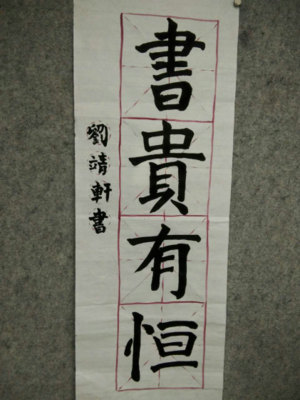 書貴有恒
劉靖軒書